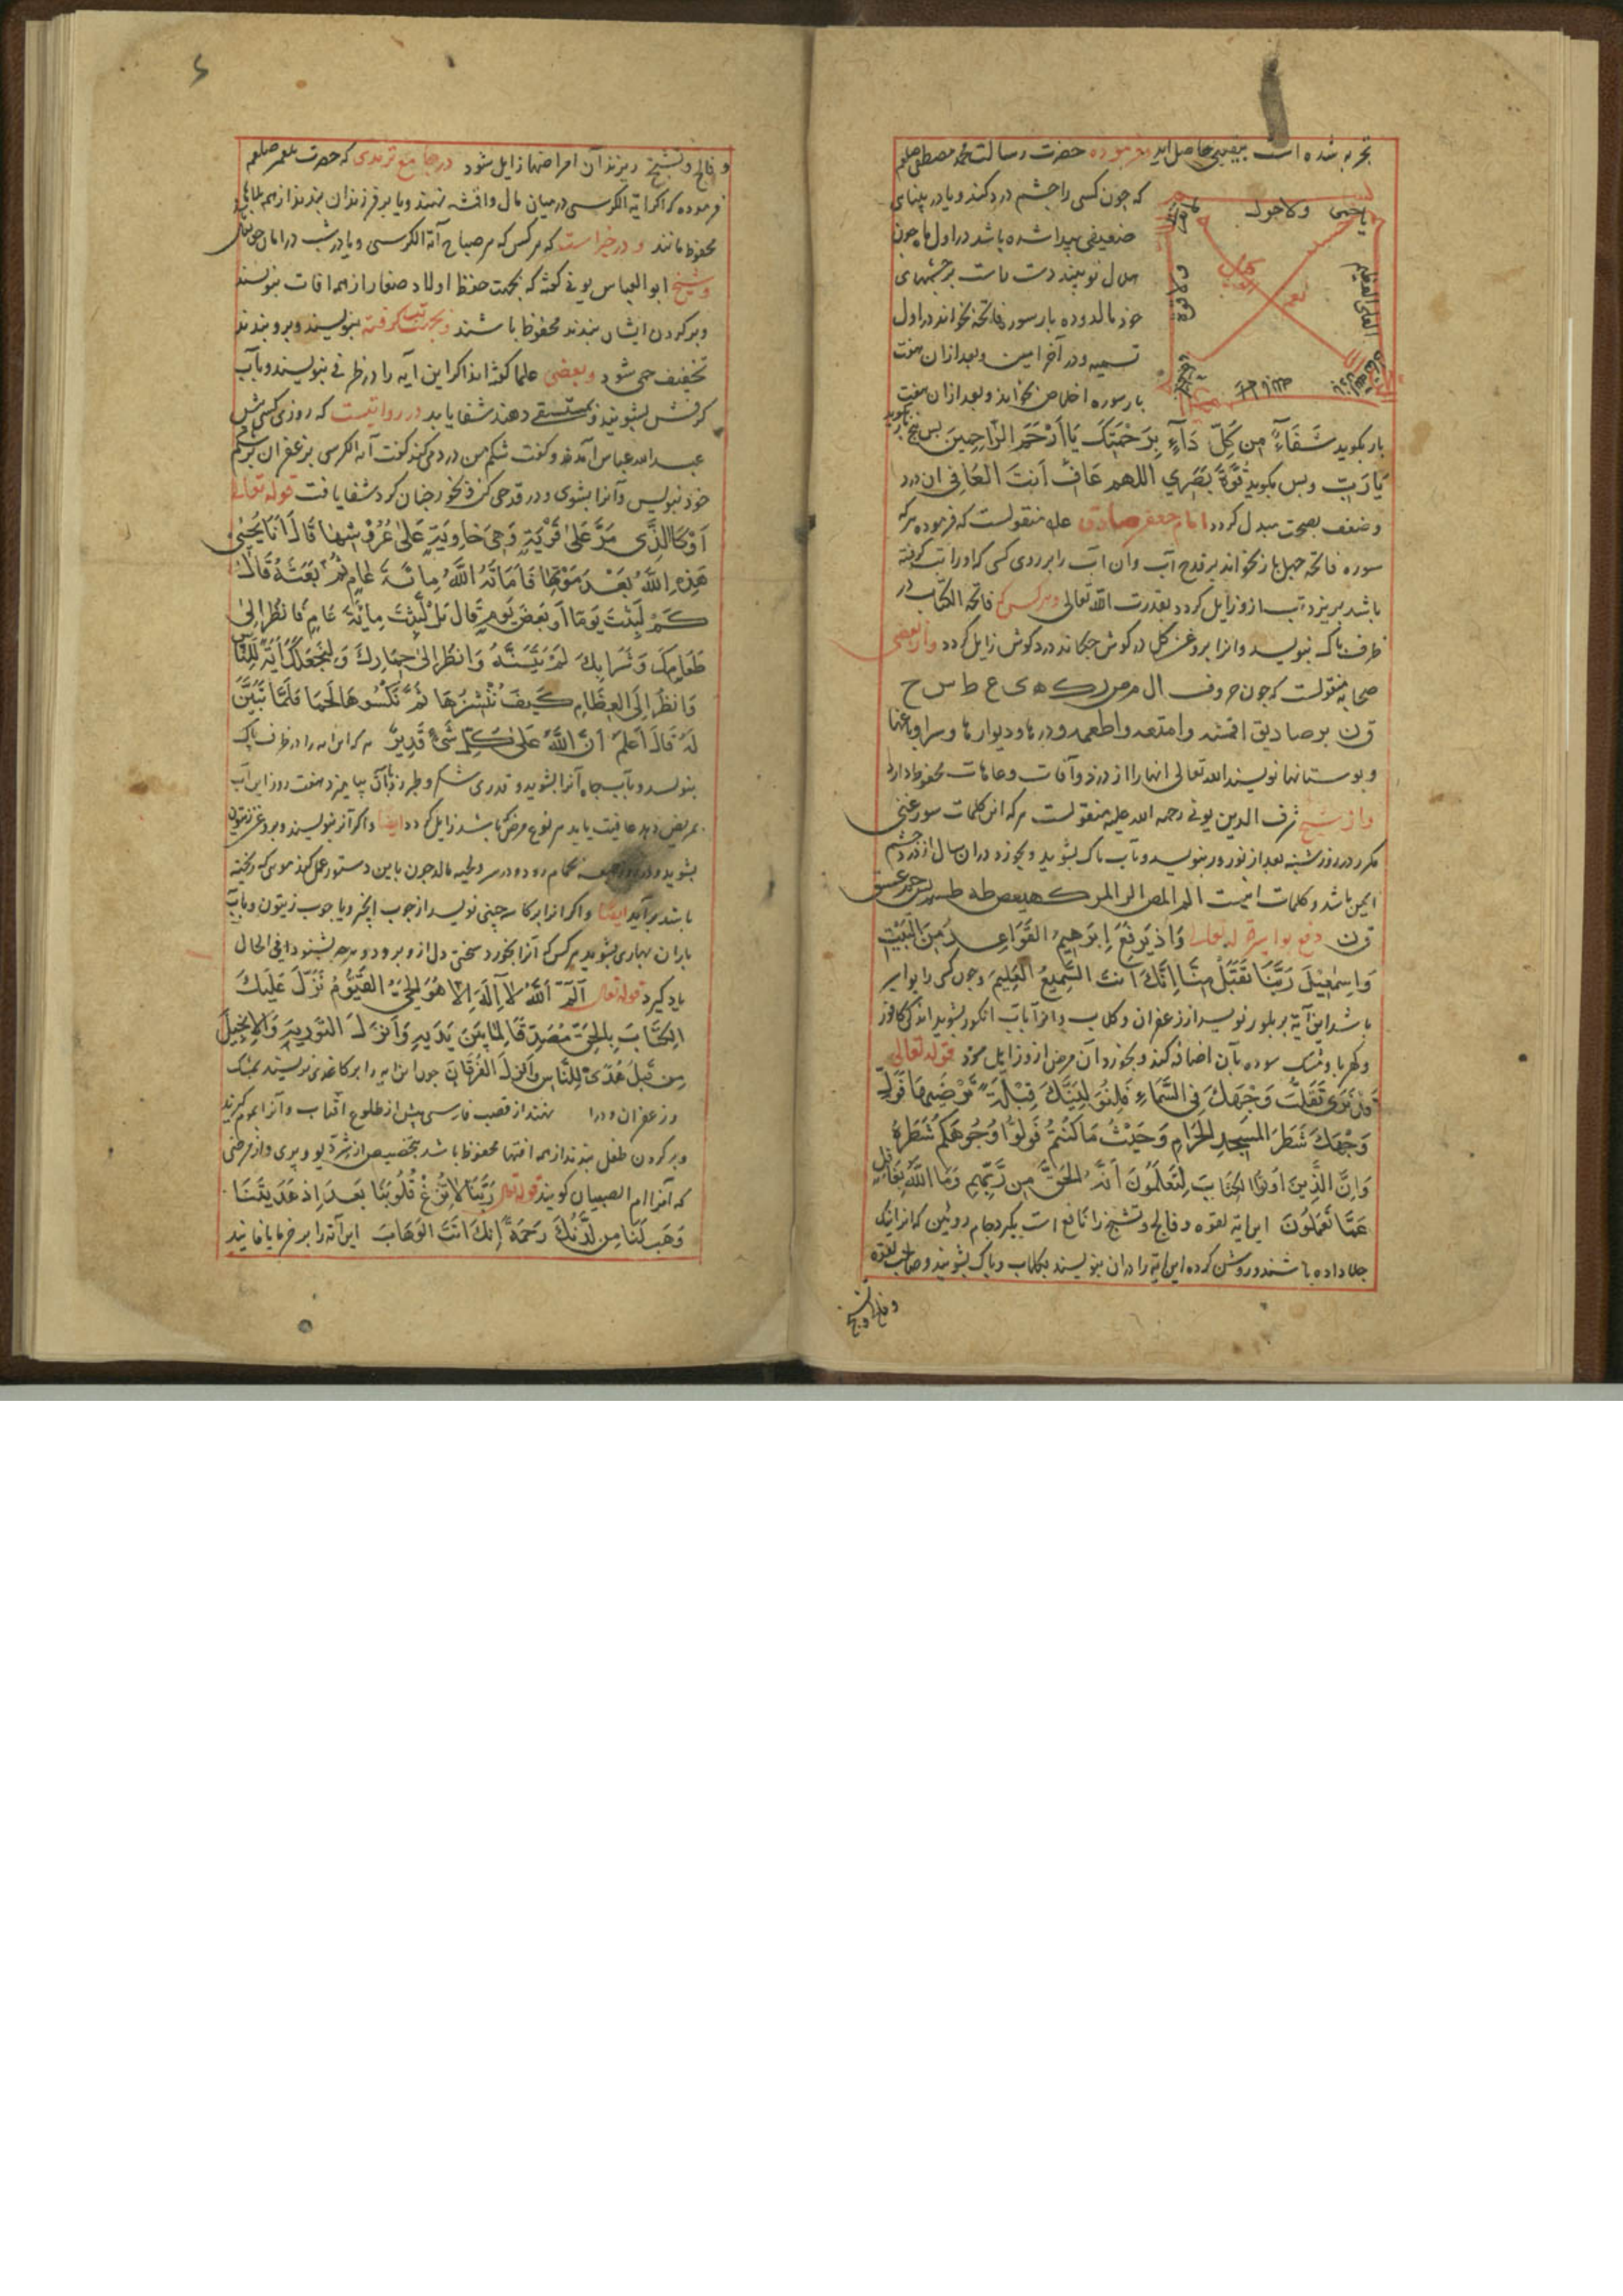 تجربه شده است بیقین حاصل آید فرموده حضرت رسالت محمد مصطفی صلعم
که چون کسی را چشم درد کند و یا در بینای
ضعیفی پیدا شده باشد در اول ماه چون
هلال نو بیند دست راست بر چشمهای
خود بمالد و ده بار سوره فاتحه بخواند در اول
تسمیه و در آخر امین و بعد ازان هفت
بار سوره اخلاص بخواند و بعد ازان هفت
یا حی ولاحول
بار بکوید شَفَآءً مِن كُلِّ دَآءٍ بِرَحْمَتِكَ يَا اَرْحَمَ الرَّاحِمِينَ پس پنج بار بکوید
يَا رَبِّ و پس بکوید قُوَّةَ بَصَرِي اللهم عَافِ اَنتَ العَافِي ان درد
و ضعف بصحت مبدل کردد امام جعفر صادق علیه منقولست که فرموده هر که
سوره فاتحه چهل بار بخواند بر قدح آب وان آب را بر روی کسی که اورا تب کرفته
باشد بریزد تب ازو زایل کردد بقدرت الله تعالی و هر کس که فاتحه الکتاب در
ظرف پاک بنویسد وانرا بروغن کل در کوش چکاند درد کوش زایل کردد و از بعضی
صحابه منقولست که چون حروف ال م ص ر ك ه ی ع ط س ح
ق ن بر صنادیق اقمشه و امتعه و اطعمه و درها و دیوارها و سرا و باغها
و بوستانها نویسند الله تعالی انها را از دزد و آفات و عاهات محفوظ دارد
و از شیخ شرف الدین بونی رحمه الله علیه منقولست هر که این کلمات
مکرر در روز شنبه بعد از نوروز بنویسد و بآب پاک بشوید و بخورد دران سال از درد چشم
ایمن باشد و کلمات اینست الم المص الر المر کهیعص طه طس یس حم عسق
ق ن دفع بواسیر قوله تعالی وَاِذ يَرفَعُ اِبرَهِيمُ القَوَاعِدَ مِنَ البَيْتِ
وَاِسمٰعِيلَ رَبَّنَا تَقَبَّل مِنَّا اِنَّكَ اَنتَ السَّمِيعُ العَلِيمُ و چون کسی را بواسیر
باشد این آیة بر بلور نویسد از زعفران و کلاب و انرا بآب انکور بشوید اندکی کافور
و کهربا و مشک سوده بآن اضافه کند و بخورد آن مرض ازو زایل شود قوله تعالی
قَد نَرَى تَقَلُّبَ وَجْهِكَ فِي السَّمَاءِ فَلَنُوَلِّيَنَّكَ قِبْلَةً تَرْضَيهَا فَوَلِّ
وَجْهَكَ شَطْرَ المَسْجِدِ الحَرَامِ وَحَيْثُ مَا كُنتُمْ فَوَلُّوا وُجُوهَكُمْ شَطْرَهُ
وَاِنَّ الَّذِينَ اُوتُوا الكِتَابَ لَيَعلَمُونَ اَنَّهُ الحَقُّ مِن رَّبِّهِم وَمَا اللهُ بِغَافِلٍ
عَمَّا تَعمَلُونَ این ایه لقوه و فالج و تشنج را نافع است بکیرد جام روئین که انرا نیک
جلا داده باشند و روشن کرده این ایة را دران بنویسند بکلاب و پاک بشویند و صاحب لقوه
و فالج و تشنج
و فالج و تشنج ریزند آن امراضها زایل شود در جامع ترمدی که حضرت پیغمبر صلعم
فرموده که اکر آیة الکرسی در میان مال و اقمشه نهند و یا بر فرزندان بندند از همه بلاها
محفوظ مانند و در خبر است که هر کس که هر صباح آیة الکرسی و یا در شب در امان حق تعالی
و شیخ ابو العباس بونی کفته که بجهت حفظ اولاد صغار از همه آفات بنویسند
و بر کردن ایشان بندند محفوظ باشند و بجهت تب کرفته بنویسند و برو بندند
تخفیف می شود و بعضی علما کفته اند اکر این آیه را در ظرفی بنویسند و بآب
کرفس بشویند و بمستسقی دهند شفا یابد در روایتست که روزی کسی پیش
عبد الله عباس آمد و کفت شکم من درد میکند کفت آیه الکرسی بزعفران بر شکم
خود بنویس و آنرا بشوی و در قدحی کن و بخور چنان کرد شفا یافت قوله تعالی
اَوْ كَالَّذِي مَرَّ عَلَى قَرْيَةٍ وَهِيَ خَاوِيَةٌ عَلَى عُرُوشِهَا قَالَ اَنّىٰ يُحْيِى
هٰذِهِ اللهُ بَعْدَ مَوْتِهَا فَاَمَاتَهُ اللهُ مِائَةَ عَامٍ ثُمَّ بَعَثَهُ قَالَ
كَمْ لَبِثْتَ يَومًا اَو بَعضَ يَومٍ قَالَ بَل لَّبِثْتَ مِائَةَ عَامٍ فَانظُر اِلَى
طَعَامِكَ وَشَرَابِكَ لَمْ يَتَسَنَّهْ وَانظُر اِلَى حِمَارِكَ وَلِنَجْعَلَكَ اٰيَةً لِلنَّاسِ
وَانظُر اِلَى العِظَامِ كَيفَ نُنْشِزُهَا ثُمَّ نَكْسُوهَا لَحْمًا فَلَمَّا تَبَيَّنَ
لَهُ قَالَ اَعلَمُ اَنَّ اللهَ عَلَى كُلِّ شَيْءٍ قَدِيرٌ هر که این ایه را در ظرف پاک
بنویسد و بآب چاه آنرا بشوید و قدری شکر و طبرزد بآن بیامیزد هفت روز این آب
بمریض دهد عافیت یابد هر نوع مرض که باشد زایل کردد ایضا و اکر آنرا بنویسند و بروغن زیتون
بشوید بحمام رود و در سر و لحیه مالد چون باین دستور عمل کند موی که ریخته
باشد برآید ایضا و اکر انرا بر کاسه چینی نویسد از چوب انجیر و یا چوب زیتون و بآب
باران بهاری بشوید هر کس که آنرا بخورد سختی دل ازو برود و هر چه بشنود فی الحال
یاد کیرد قوله تعالی الٓمّٓ اَللهُ لَا اِلٰهَ اِلَّا هُوَ الحَيُّ القَيُّومُ نَزَّلَ عَلَيكَ
الكِتَابَ بِالحَقِّ مُصَدِّقًا لِمَا بَينَ يَدَيهِ وَاَنزَلَ التَّورِيةَ وَالاِنجِيلَ
مِن قَبلُ هُدًى لِلنَّاسِ وَاَنزَلَ الفُرقَانَ چون این ایه را بر کاغذی نویسند بمشک
و زعفران و در نهند از قصب فارسی پیش از طلوع آفتاب و آنرا بموم کیرند
و بر کردن طفل بندند از همه افتها محفوظ باشد بتخصیص از شر دیو و پری و از مرضی
که آنرا ام الصبیان کویند قوله تعالی رَبَّنَا لَا تُزِغْ قُلُوبَنَا بَعدَ اِذ هَدَيْتَنَا
وَهَبْ لَنَا مِن لَدُنكَ رَحْمَةً اِنَّكَ اَنتَ الوَهَّابُ این آیه را بر خرما یا نانی